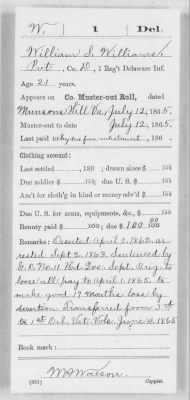 W. 1 Del.
William S. Williams
Pvt., Co. D, 1 Reg't Delaware Inf.
Age 21 years.
Appears on Co. Muster-out Roll, dated
Munsons Hill Va, July 12, 1865.
Muster-out to date July 12, 1865.
Last paid to 186 .
Clothing account:
Last settled , 186 ; drawn since $ 100
Due soldier $ 100; due U. S. $ 100
Am't for cloth'g in kind or money adv'd $ 100
Due U. S. for arms, equipments, &c., $ 100
Bounty paid $ 100; due $ 100 00/100
Remarks: Deserted April 2, 1862, ar-
rested Sept. 2, 1863. Sentenced by
G.O. No. 11 Hd. Brig. to
loose all pay to April 1, 1865. to
make good 17 months loss by
desertion. Transferred from 3rd
to 1st Del. Vet. Vols. June 10, 1865
Book mark:
M P Watson
(361) Copyist.